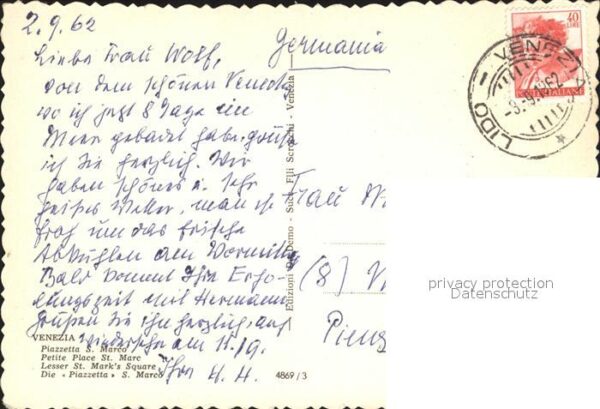 2.9.62
Germania
Liebe Frau Wolf,
von dem schönen Venedig
wo ich jetzt 8 Tage im
Meer gebadet habe, grüße
ich Sie herzlich. Wir
haben schönes u. sehr
heißes Wetter, man ist
froh um das frische
Abkühlen am Vormittag
Bald kommt Ihre Erho-
lungszeit mit Hermann
Grüßen Sie ihn herzlich, auf
Wiedersehn am 11./9.
Ihre H. H.
VENEZIA
Piazzetta S. Marco
Petite Place St. Marc
Lesser St. Mark's Square
Die « Piazzetta » S. Marco
4869/3
Edizioni Demo - Succ. F.lli Scrocchi - Venezia
40
LIRE
POSTE ITALIANE
LIDO - VENEZIA
-3.9.1962
Frau
(8)
privacy protection
Datenschutz